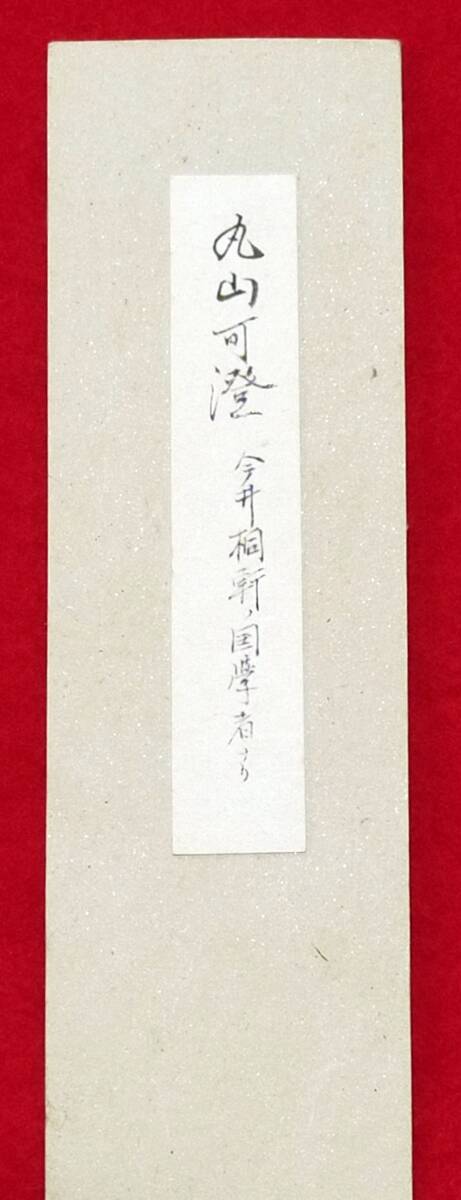 丸山可澄 今井桐軒ノ国学者なり